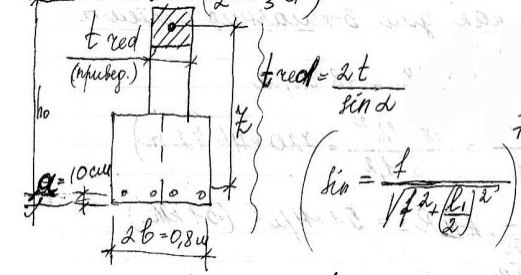 t red
(привед.)
h₀
z
a = 10 см
2b = 0,8 м
t red = 2t / sin α
(sin = f / √(f² + (l₁/2)²))